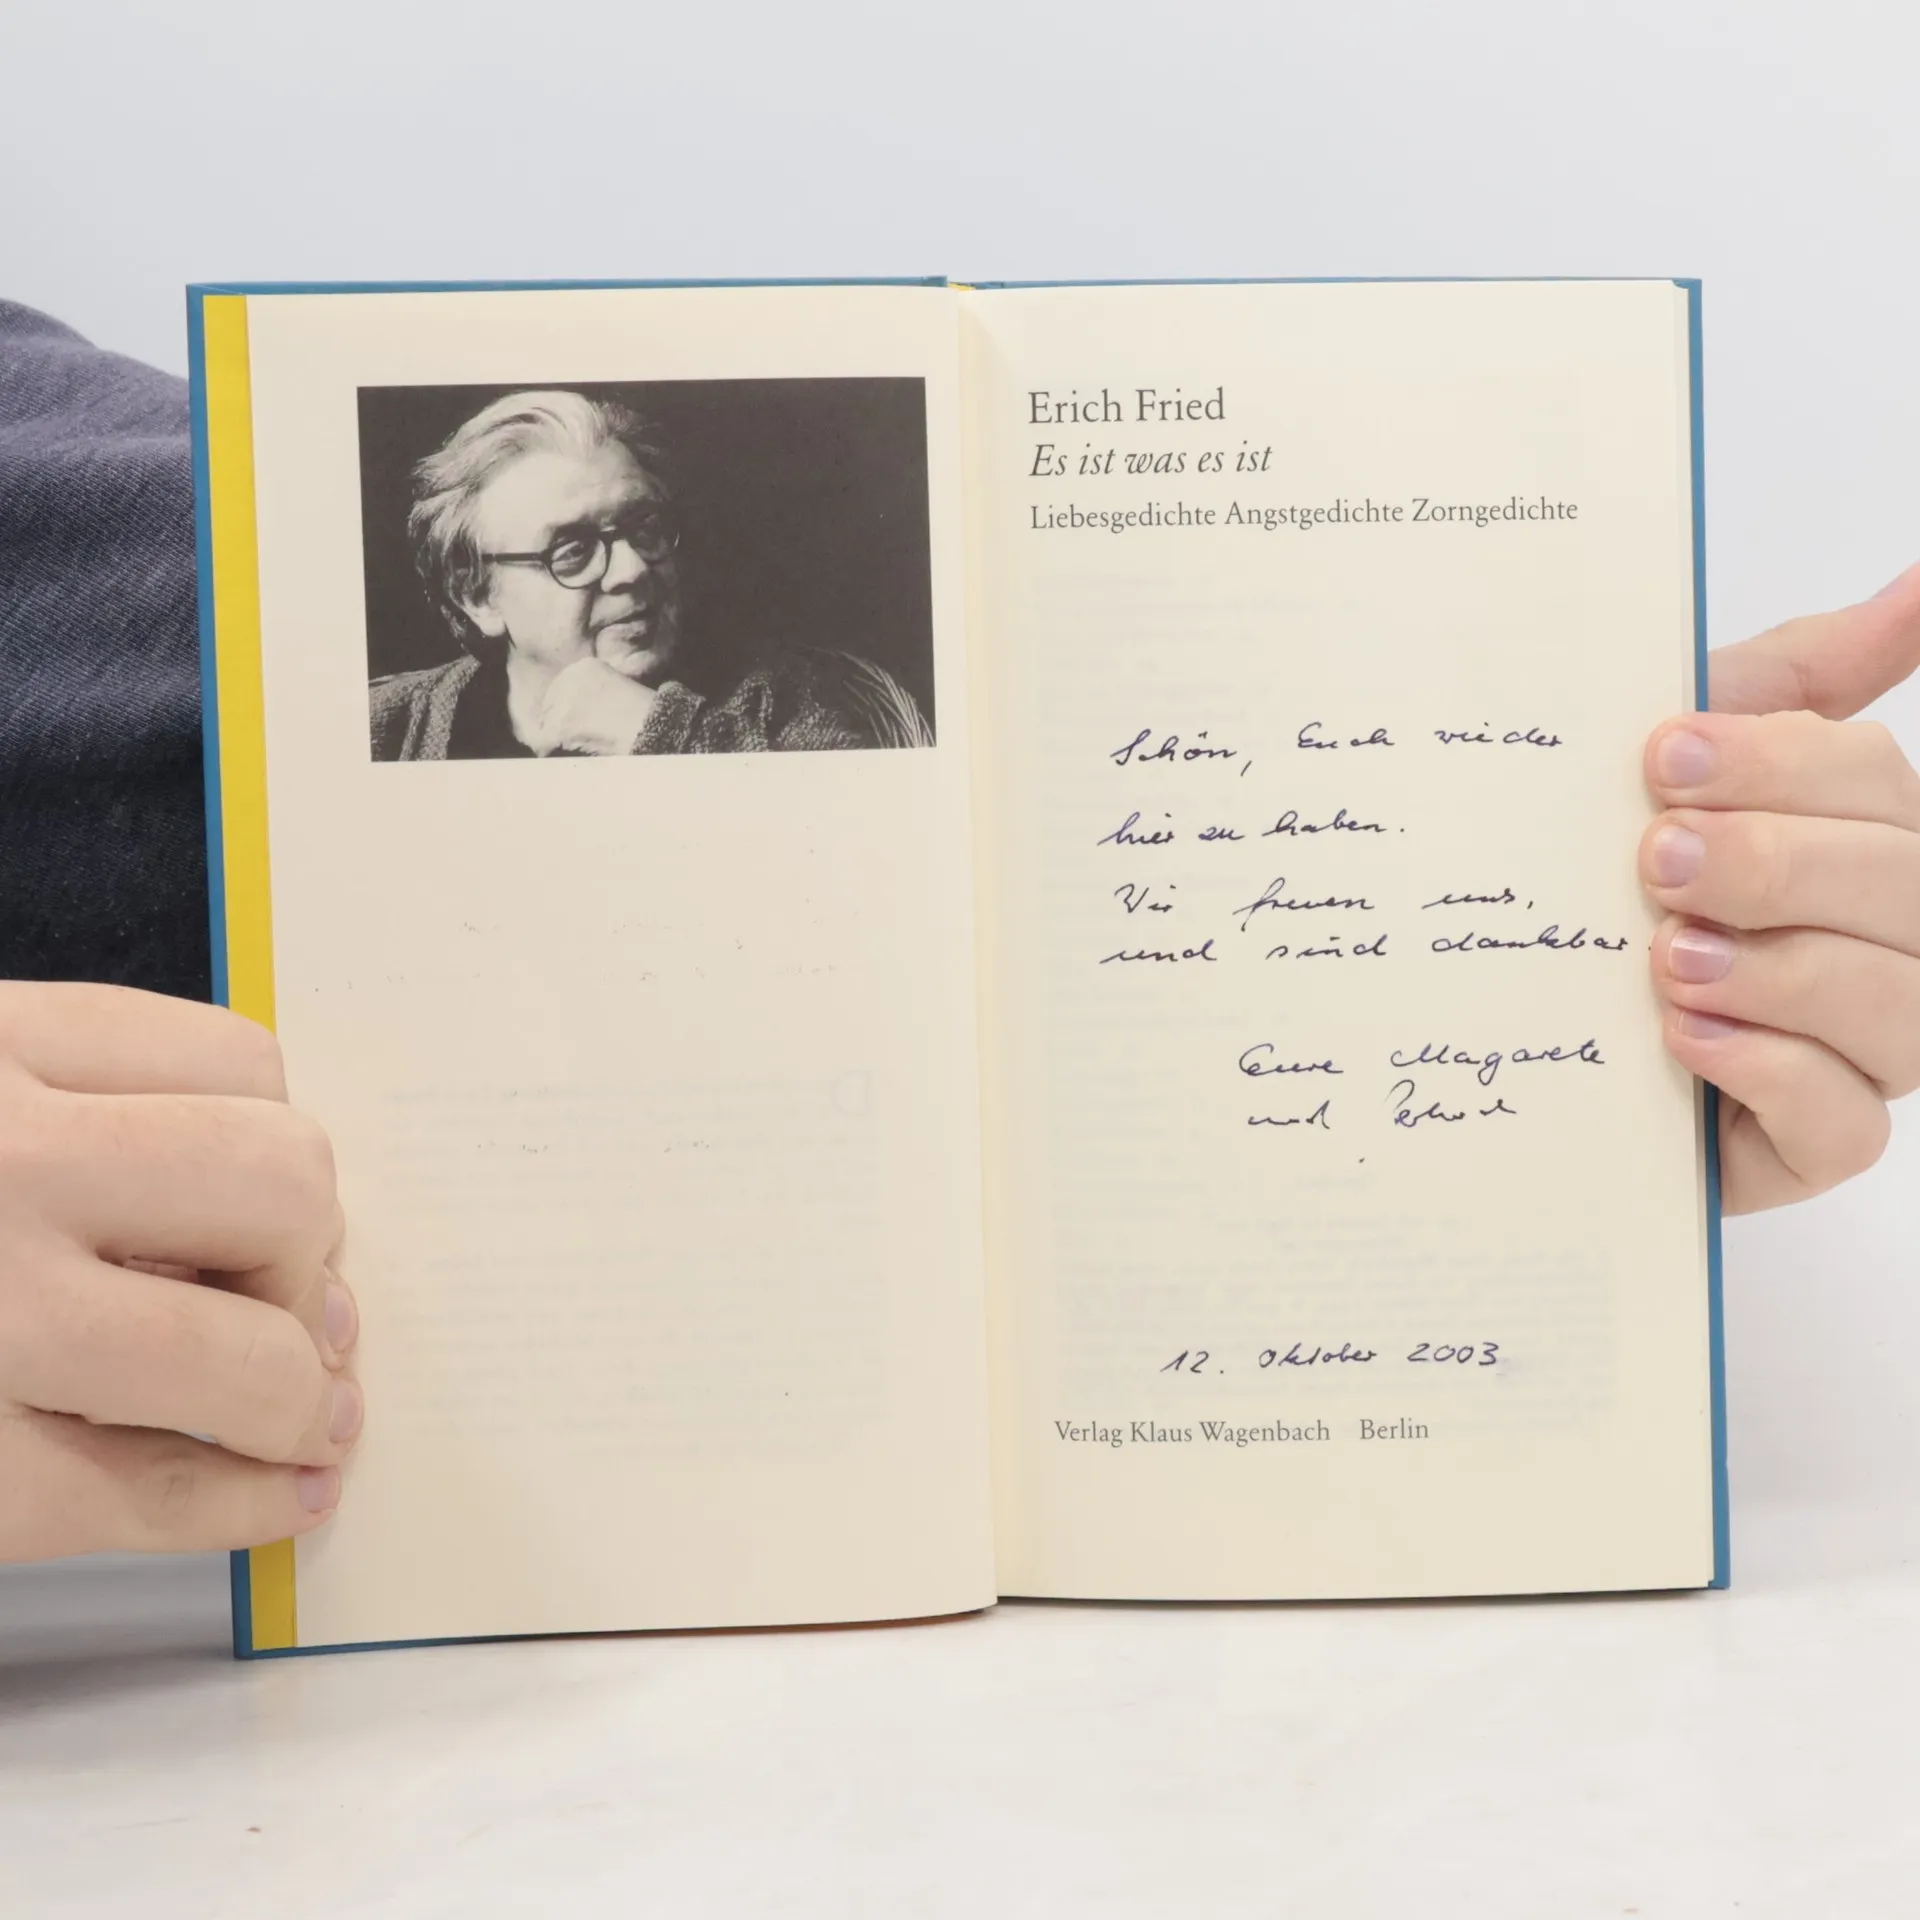 Erich Fried
Es ist was es ist
Liebesgedichte Angstgedichte Zorngedichte
Schön, Euch wieder
hier zu haben.
Wir freuen uns,
und sind dankbar.
Eure Magarete
und
12. Oktober 2003
Verlag Klaus Wagenbach Berlin